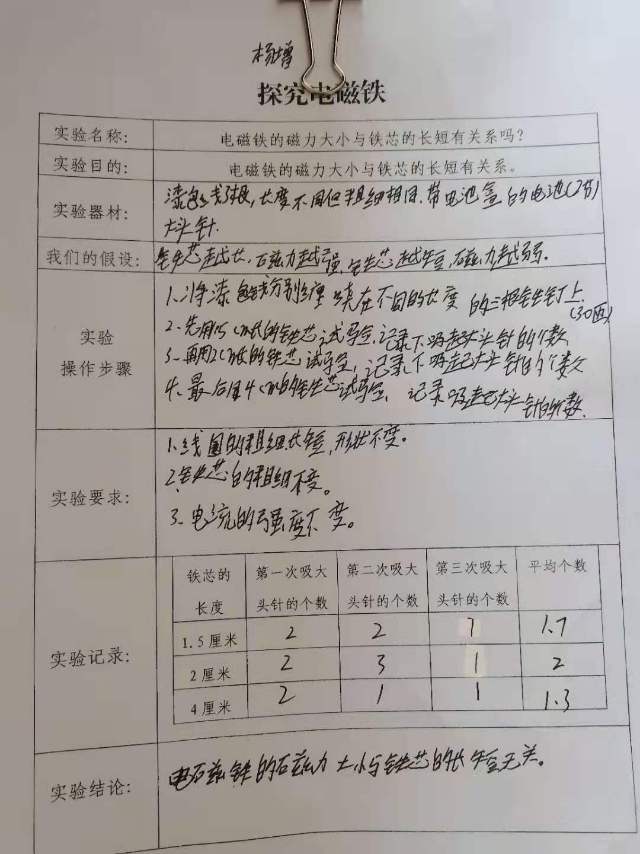 杨增
探究电磁铁
实验名称: 电磁铁的磁力大小与铁芯的长短有关系吗?
实验目的: 电磁铁的磁力大小与铁芯的长短有关系。
实验器材: 漆包线3根,长度不同但粗细相同,带电池盒的电池(2节)
大头针
我们的假设: 铁芯越长,磁力越强,铁芯越短,磁力越弱。
实验
操作步骤
1、将漆包线分别缠绕在不同的长度的三根铁钉上
(30匝)
2、先用1.5cm长的铁芯试验,记录下吸起大头针的个数
3、再用2cm长的铁芯试验,记录下吸起大头针的个数
4、最后用4cm的铁芯试验,记录吸起大头针的个数.
实验要求:
1、线圈的粗细长短,形状不变。
2、铁芯的粗细不变。
3、电流的强度不变。
实验记录:
铁芯的长度 第一次吸大头针的个数 第二次吸大头针的个数 第三次吸大头针的个数 平均个数
1.5厘米 2 2 1 1.7
2厘米 2 3 1 2
4厘米 2 1 1 1.3
实验结论: 电磁铁的磁力大小与铁芯的长短无关。